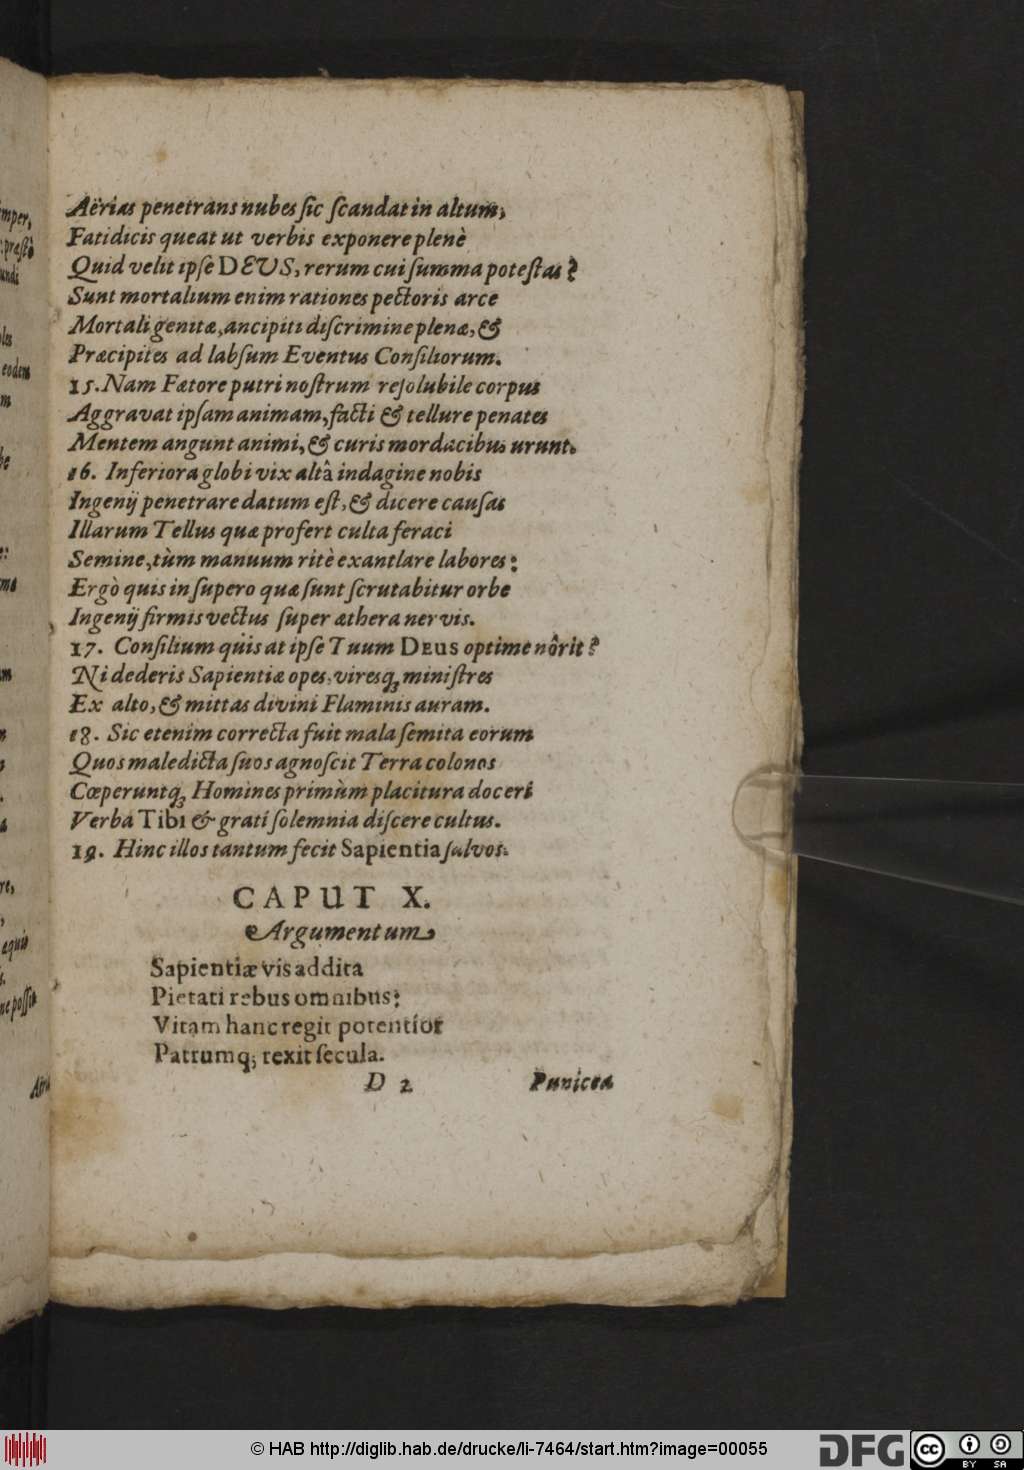 Aërias penetrans nubes sic scandat in altum,
Fatidicis queat ut verbis exponere plenè
Quid velit ipse DEUS, rerum cui summa potestas?
Sunt mortalium enim rationes pectoris arce
Mortali genitæ, ancipiti discrimine plenæ, &
Præcipites ad labsum Eventus Consiliorum.
15. Nam Fætore putri nostrum resolubile corpus
Aggravat ipsam animam, facti & tellure penates
Mentem angunt animi, & curis mordacibus urunt.
16. Inferiora globi vix altâ indagine nobis
Ingenij penetrare datum est, & dicere causas
Illarum Tellus quæ profert culta feraci
Semine, tùm manuum ritè exantlare labores:
Ergò quis in supero quæ sunt scrutabitur orbe
Ingenij firmis vectus super æthera nervis.
17. Consilium quis at ipse Tuum DEUS optime nôrit?
Ni dederis Sapientiæ opes, viresq; ministres
Ex alto, & mittas divini Flaminis auram.
18. Sic etenim correcta fuit mala semita eorum
Quos maledicta suos agnoscit Terra colonos
Cœperuntq; Homines primùm placitura doceri
Verba TIBI & grati solemnia discere cultus.
19. Hinc illos tantum fecit Sapientia salvos.
CAPUT X.
Argumentum
Sapientiæ vis addita
Pietati rebus omnibus:
Vitam hanc regit potentior
Patrumq; rexit secula.
D 2 Punicea
mper,
eodem
aquis
© HAB http://diglib.hab.de/drucke/li-7464/start.htm?image=00055
DFG
cc
BY SA